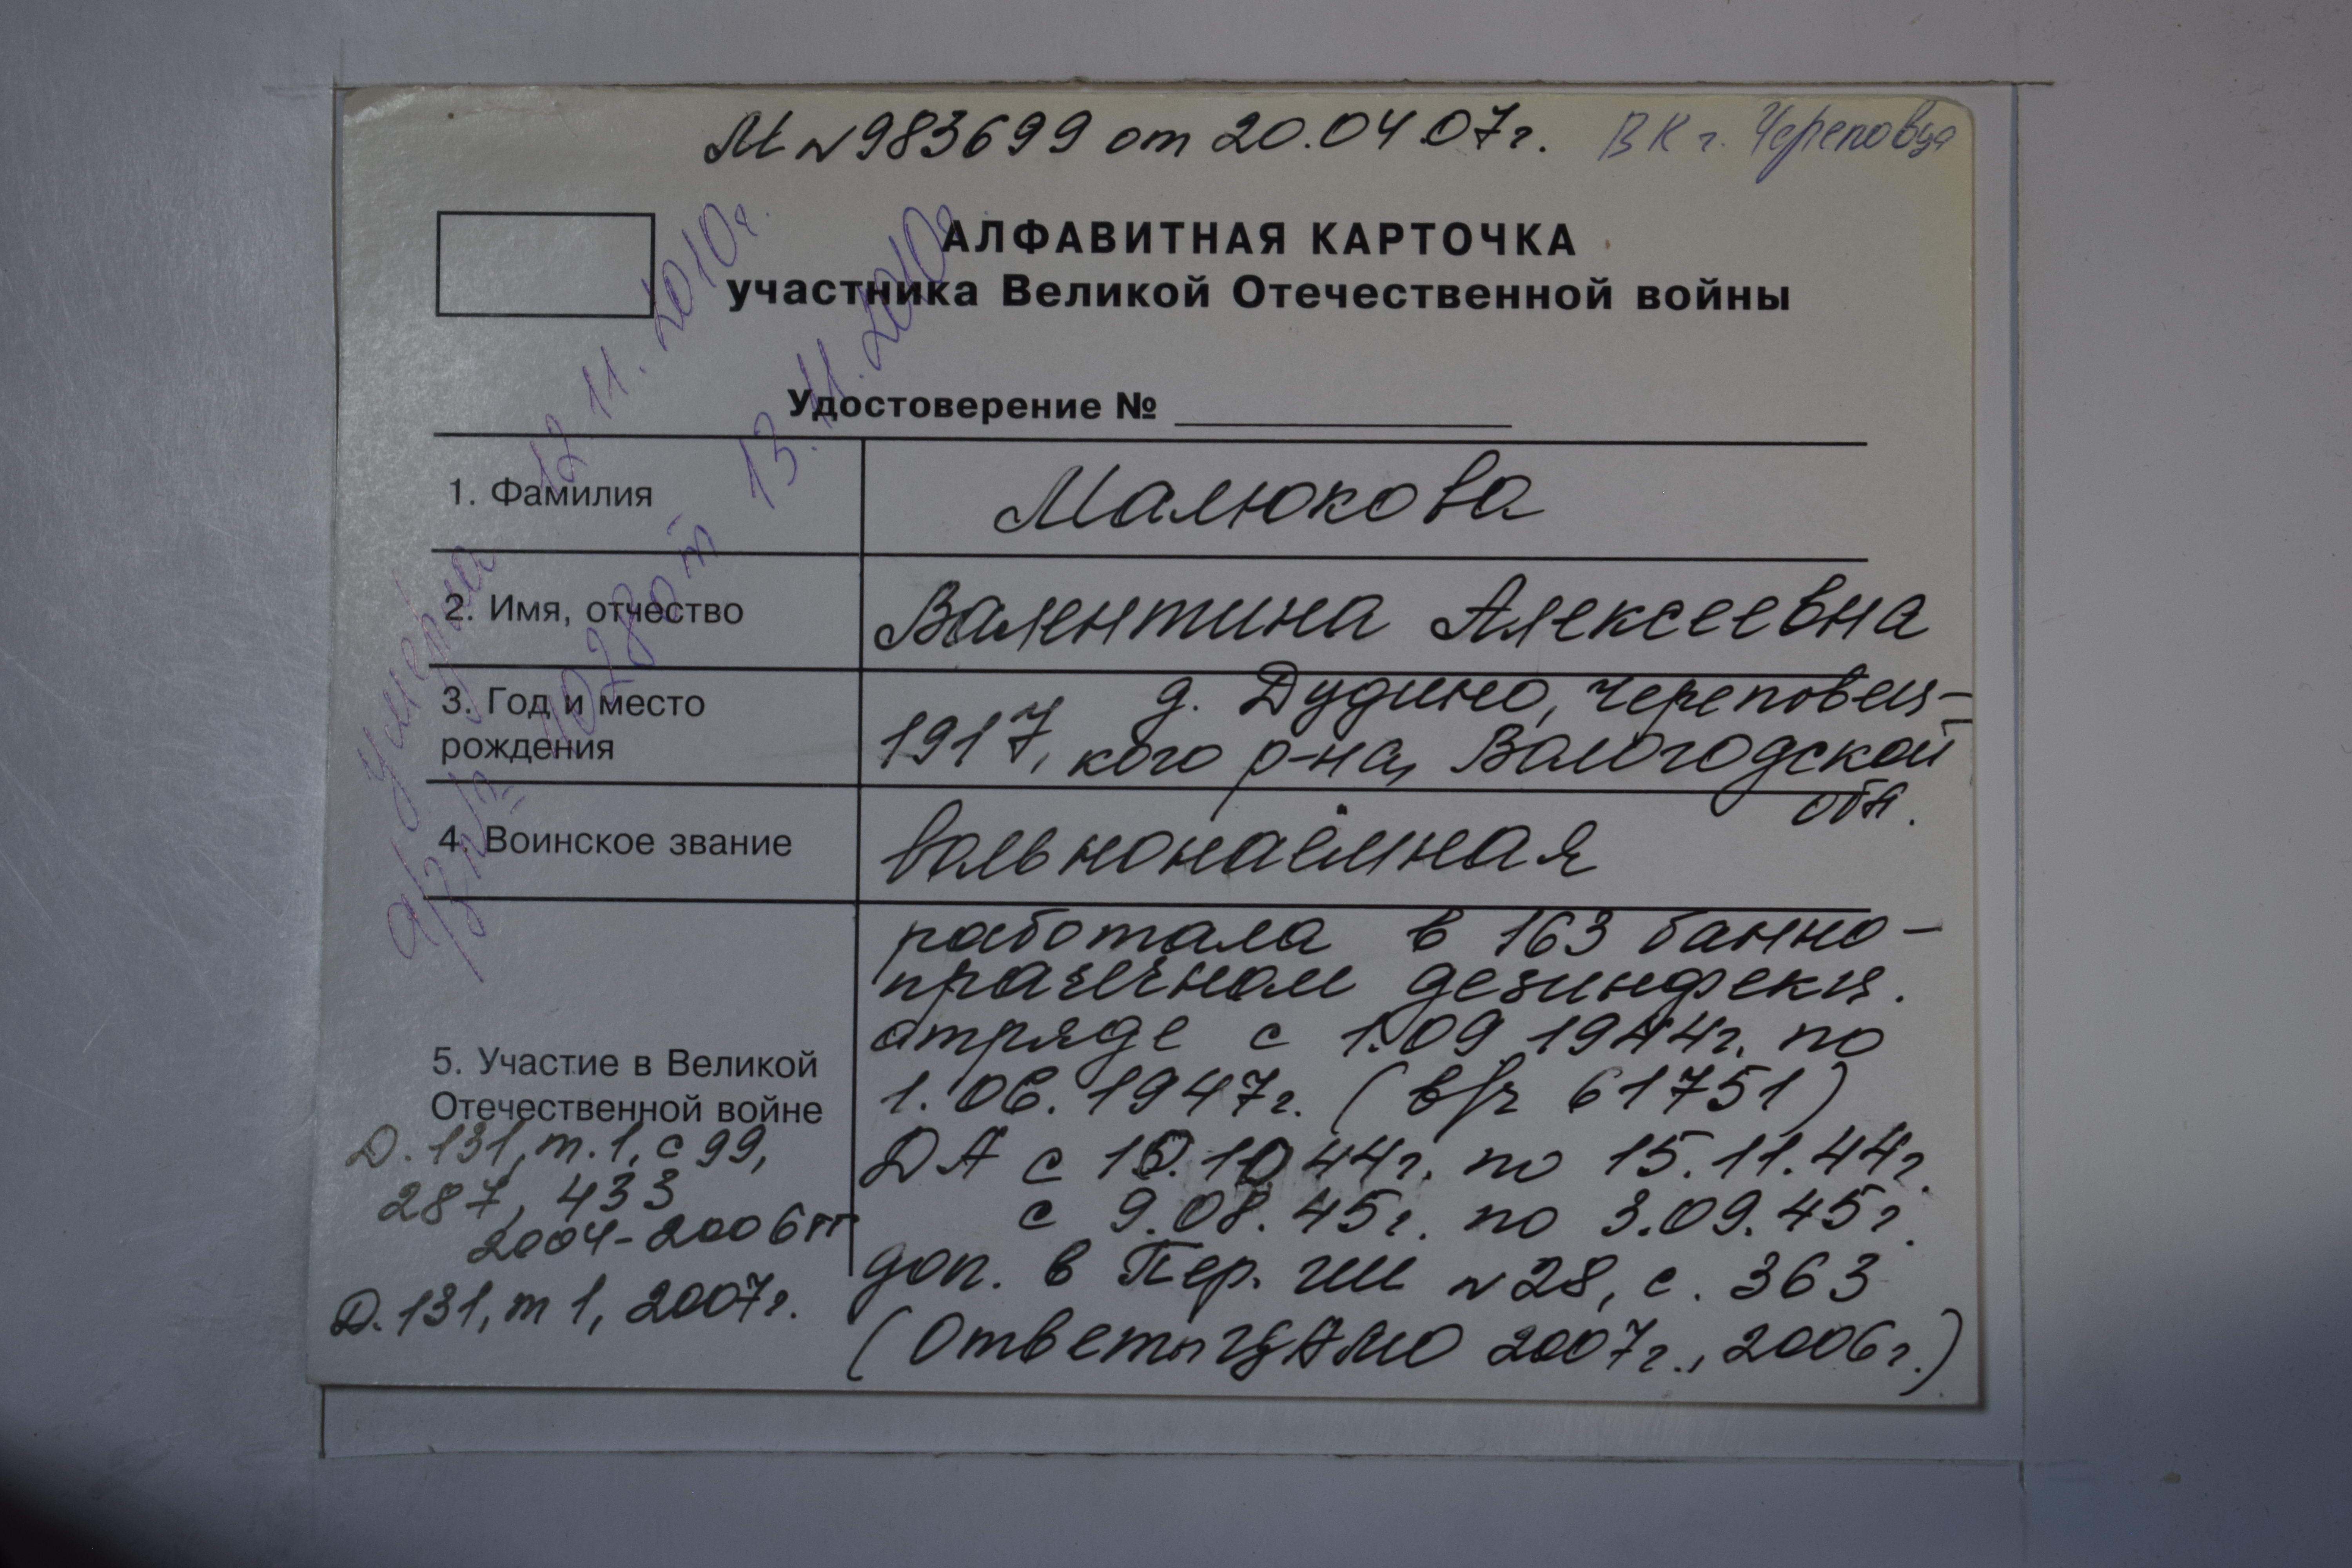 М №983699 от 20.04.07г. ВК г. Череповца
АЛФАВИТНАЯ КАРТОЧКА
участника Великой Отечественной войны
Удостоверение №
умерла 12.11.2010г.
а/з №3 1028 от 13.11.2010г
1. Фамилия
Малюкова
2. Имя, отчество
Валентина Алексеевна
3. Год и место
рождения
д. Дудино, Череповец-
1917, кого р-на, Вологодской
обл.
4. Воинское звание
вольнонаёмная
5. Участие в Великой
Отечественной войне
работала в 163 банно-
прачечном дезинфекц.
отряде с 1.09 1944г. по
1.06.1947г. (в/ч 61751)
ДА с 10.10 44г. по 15.11.44г.
с 9.08.45г. по 3.09.45г.
доп. в Пер. ГШ №28, с. 363
(Ответы ЦАМО 2007г., 2006г.)
Д.131, т.1, с 99,
287, 433
2004-2006гг
Д.131, т 1, 2007г.